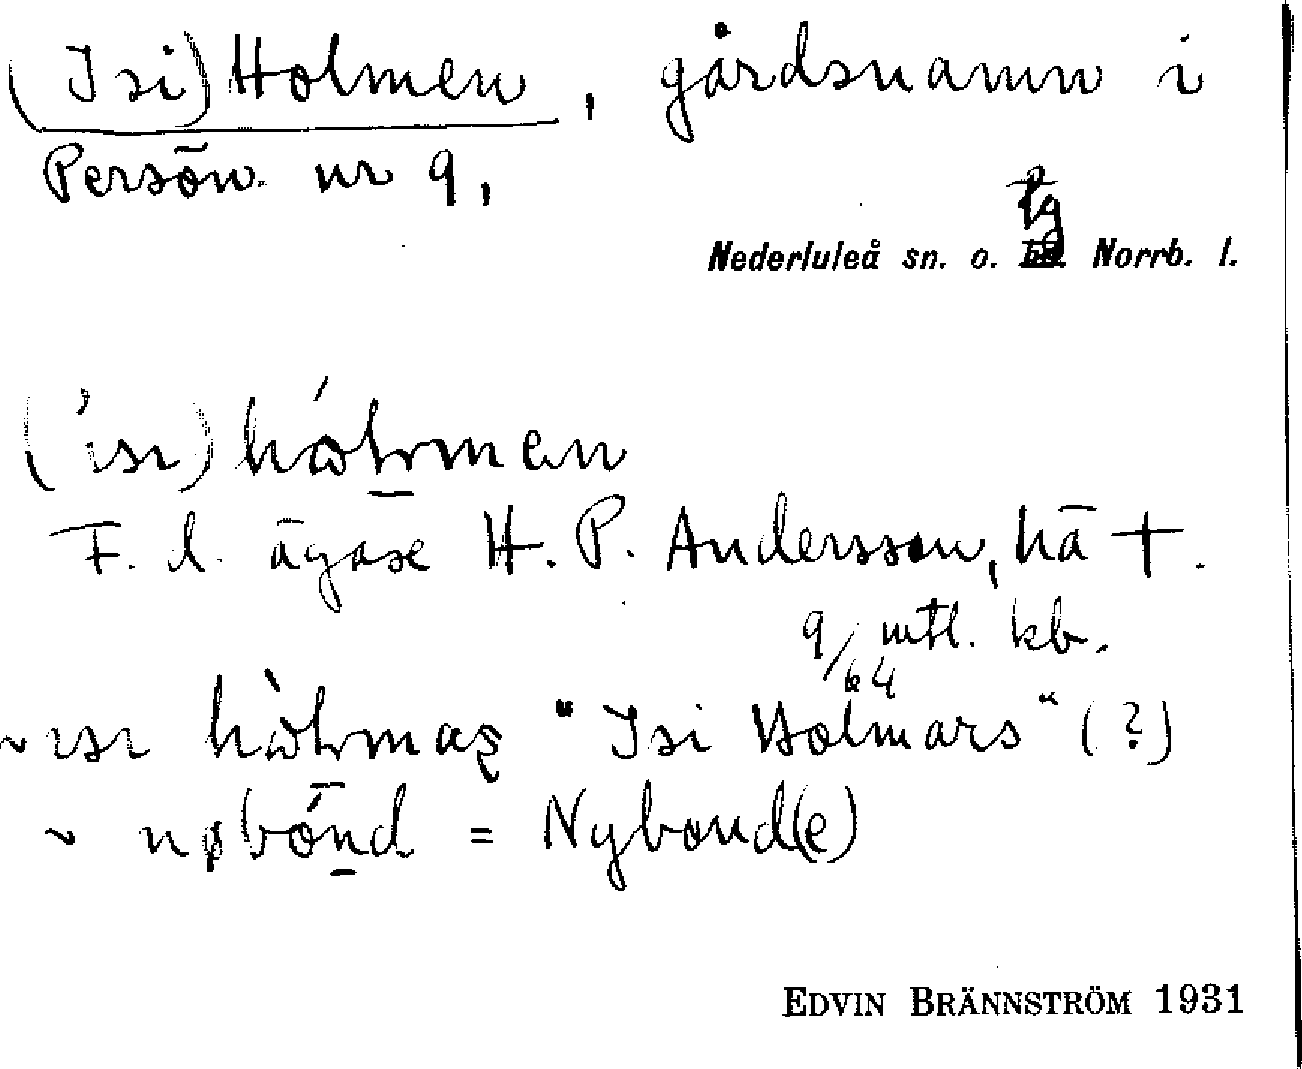 (Isi) Holmen, gårdsnamn i
Persön nr 9,
tg
Nederluleå sn. o. Norrb. l.
F. d. ägare H. P. Andersson, hä †.
9/64 mtl. kb.
"Isi Holmars" (?)
~ = Nybond(e)
EDVIN BRÄNNSTRÖM 1931